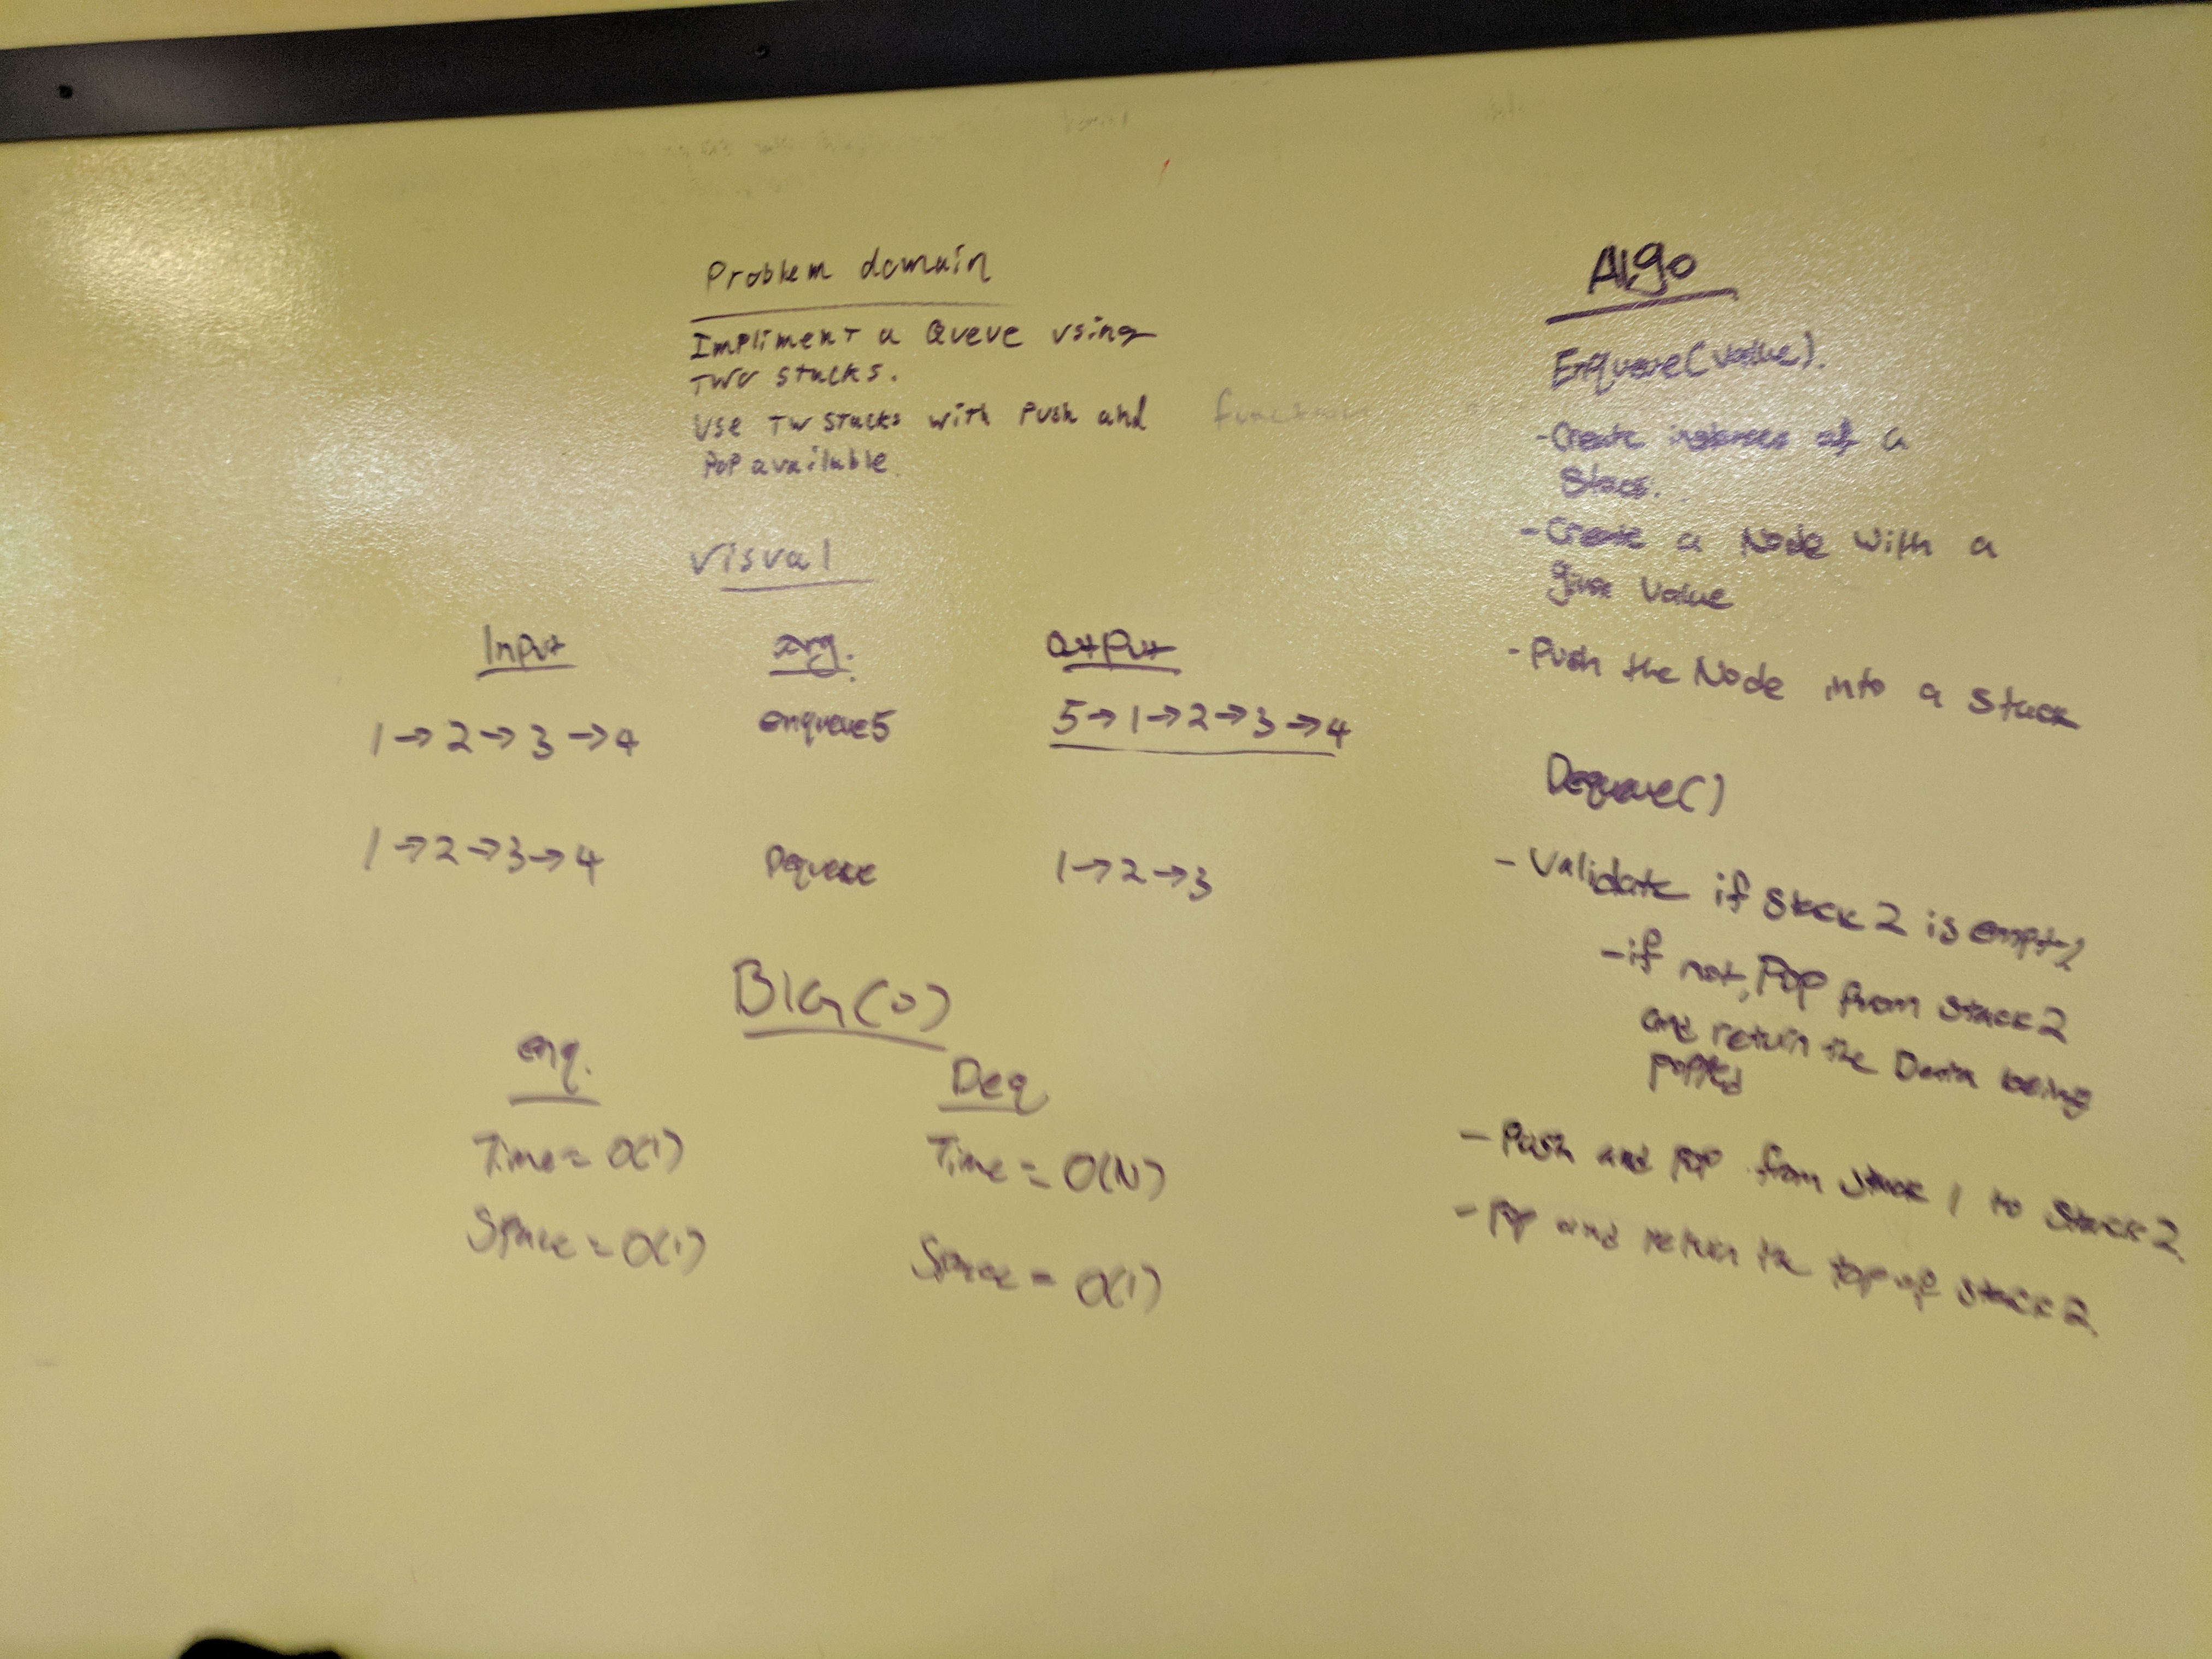 Problem domain
Impliment a Queue using
Two stacks.
Use Tw stacks with Push and
Pop available
function
Visual
Input
arg.
Output
1→2→3→4
enqueue5
5→1→2→3→4
1→2→3→4
Dequeue
1→2→3
BIG(O)
enq.
Time = O(1)
Space = O(1)
Deq
Time = O(N)
Space = O(1)
Algo
Enqueue(value).
- Create instances of a
Stack.
- Create a Node with a
give Value
- Push the Node into a Stack
Dequeue()
- Validate if Stack 2 is empty
- if not, Pop from stack 2
and return the Data being
popped
- Push and pop from stack 1 to Stack 2.
- Pop and return the top of stack 2.